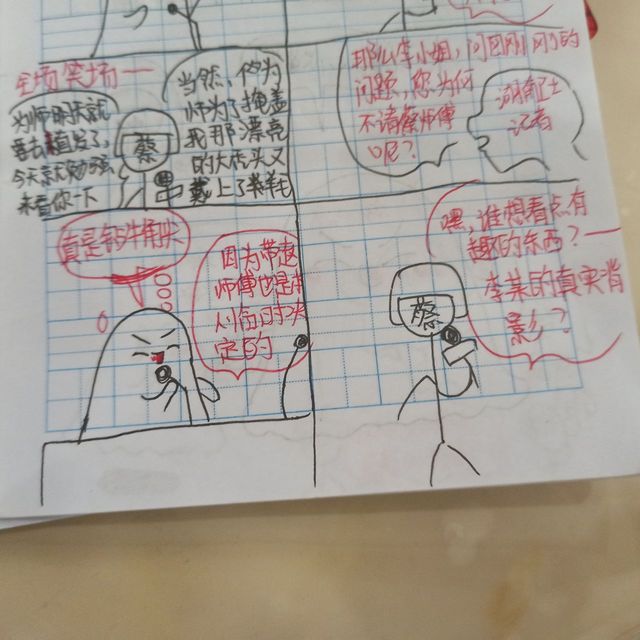 全场哭场——
为师明天就
要去植发了，
今天亲
来看你一下
蔡
当然，你为
师为了掩盖
我那漂亮
的大片头又
戴上了
那么李小姐，问回刚刚的
问题，您为何
不请蔡师傅
呢？
湖南卫士
记者
真是钻牛角
因为
师傅也是
临时决
定的
嘿，谁想看点有
趣的东西？——
李某的真实肖
影？
蔡